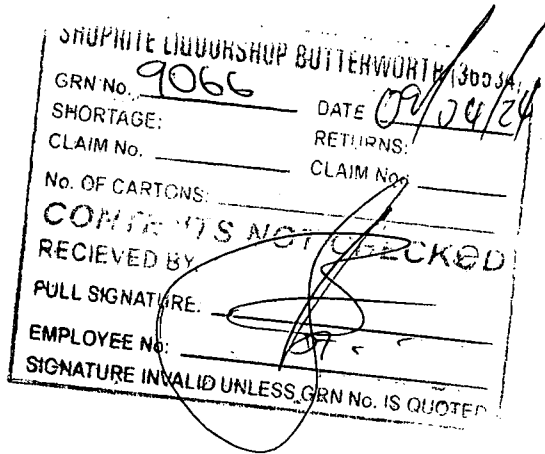 SHOPRITE LIQUORSHOP BUTTERWORTH (36534)
GRN No. 9066 DATE 09/04/24
SHORTAGE: RETURNS:
CLAIM No. CLAIM No.
No. OF CARTONS:
CONTENTS NOT CHECKED
RECIEVED BY
FULL SIGNATURE:
EMPLOYEE No:
SIGNATURE INVALID UNLESS GRN No. IS QUOTED